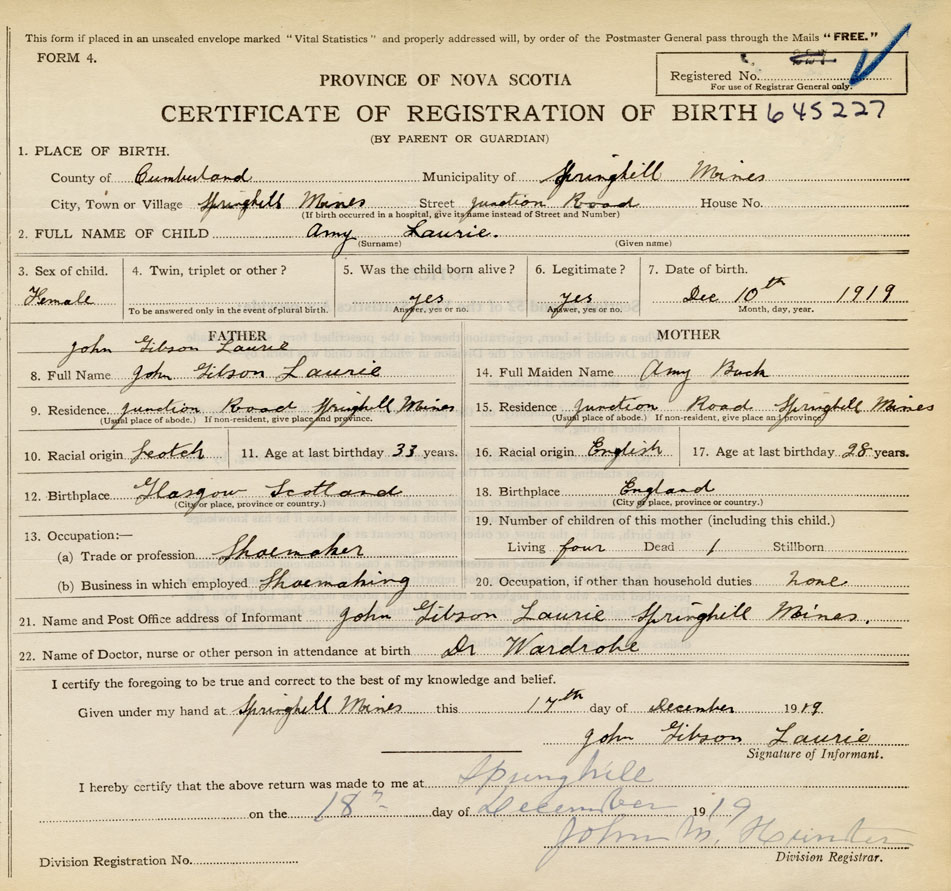 This form if placed in an unsealed envelope marked "Vital Statistics" and properly addressed will, by order of the Postmaster General pass through the Mails "FREE."
FORM 4.
Registered No.
For use of Registrar General only.
PROVINCE OF NOVA SCOTIA
CERTIFICATE OF REGISTRATION OF BIRTH 645227
(BY PARENT OR GUARDIAN)
1. PLACE OF BIRTH.
County of Cumberland Municipality of Springhill Mines
City, Town or Village Springhill Mines Street Junction Road House No.
(If birth occurred in a hospital, give its name instead of Street and Number)
2. FULL NAME OF CHILD Amy Laurie.
(Surname) (Given name)
3. Sex of child. 4. Twin, triplet or other? 5. Was the child born alive? 6. Legitimate? 7. Date of birth.
Female yes yes Dec 10th 1919
To be answered only in the event of plural birth. Answer, yes or no. Answer, yes or no. Month, day, year.
FATHER MOTHER
John Gibson Laurie
8. Full Name John Gibson Laurie 14. Full Maiden Name Amy Buck
9. Residence Junction Road Springhill Mines 15. Residence Junction Road Springhill Mines
(Usual place of abode.) If non-resident, give place and province. (Usual place of abode.) If non-resident, give place and province)
10. Racial origin Scotch 11. Age at last birthday 33 years. 16. Racial origin English 17. Age at last birthday 28 years.
12. Birthplace Glasgow Scotland 18. Birthplace England
(City or place, province or country.) (City or place, province or country.)
13. Occupation:— 19. Number of children of this mother (including this child.)
(a) Trade or profession Shoemaker Living four Dead 1 Stillborn
(b) Business in which employed Shoemaking 20. Occupation, if other than household duties none
21. Name and Post Office address of Informant John Gibson Laurie Springhill Mines.
22. Name of Doctor, nurse or other person in attendance at birth Dr Wardrobe
I certify the foregoing to be true and correct to the best of my knowledge and belief.
Given under my hand at Springhill Mines this 17th day of December 1919
John Gibson Laurie
Signature of Informant.
I hereby certify that the above return was made to me at Springhill
on the 18th day of December 1919
John M. Hunter
Division Registration No. Division Registrar.